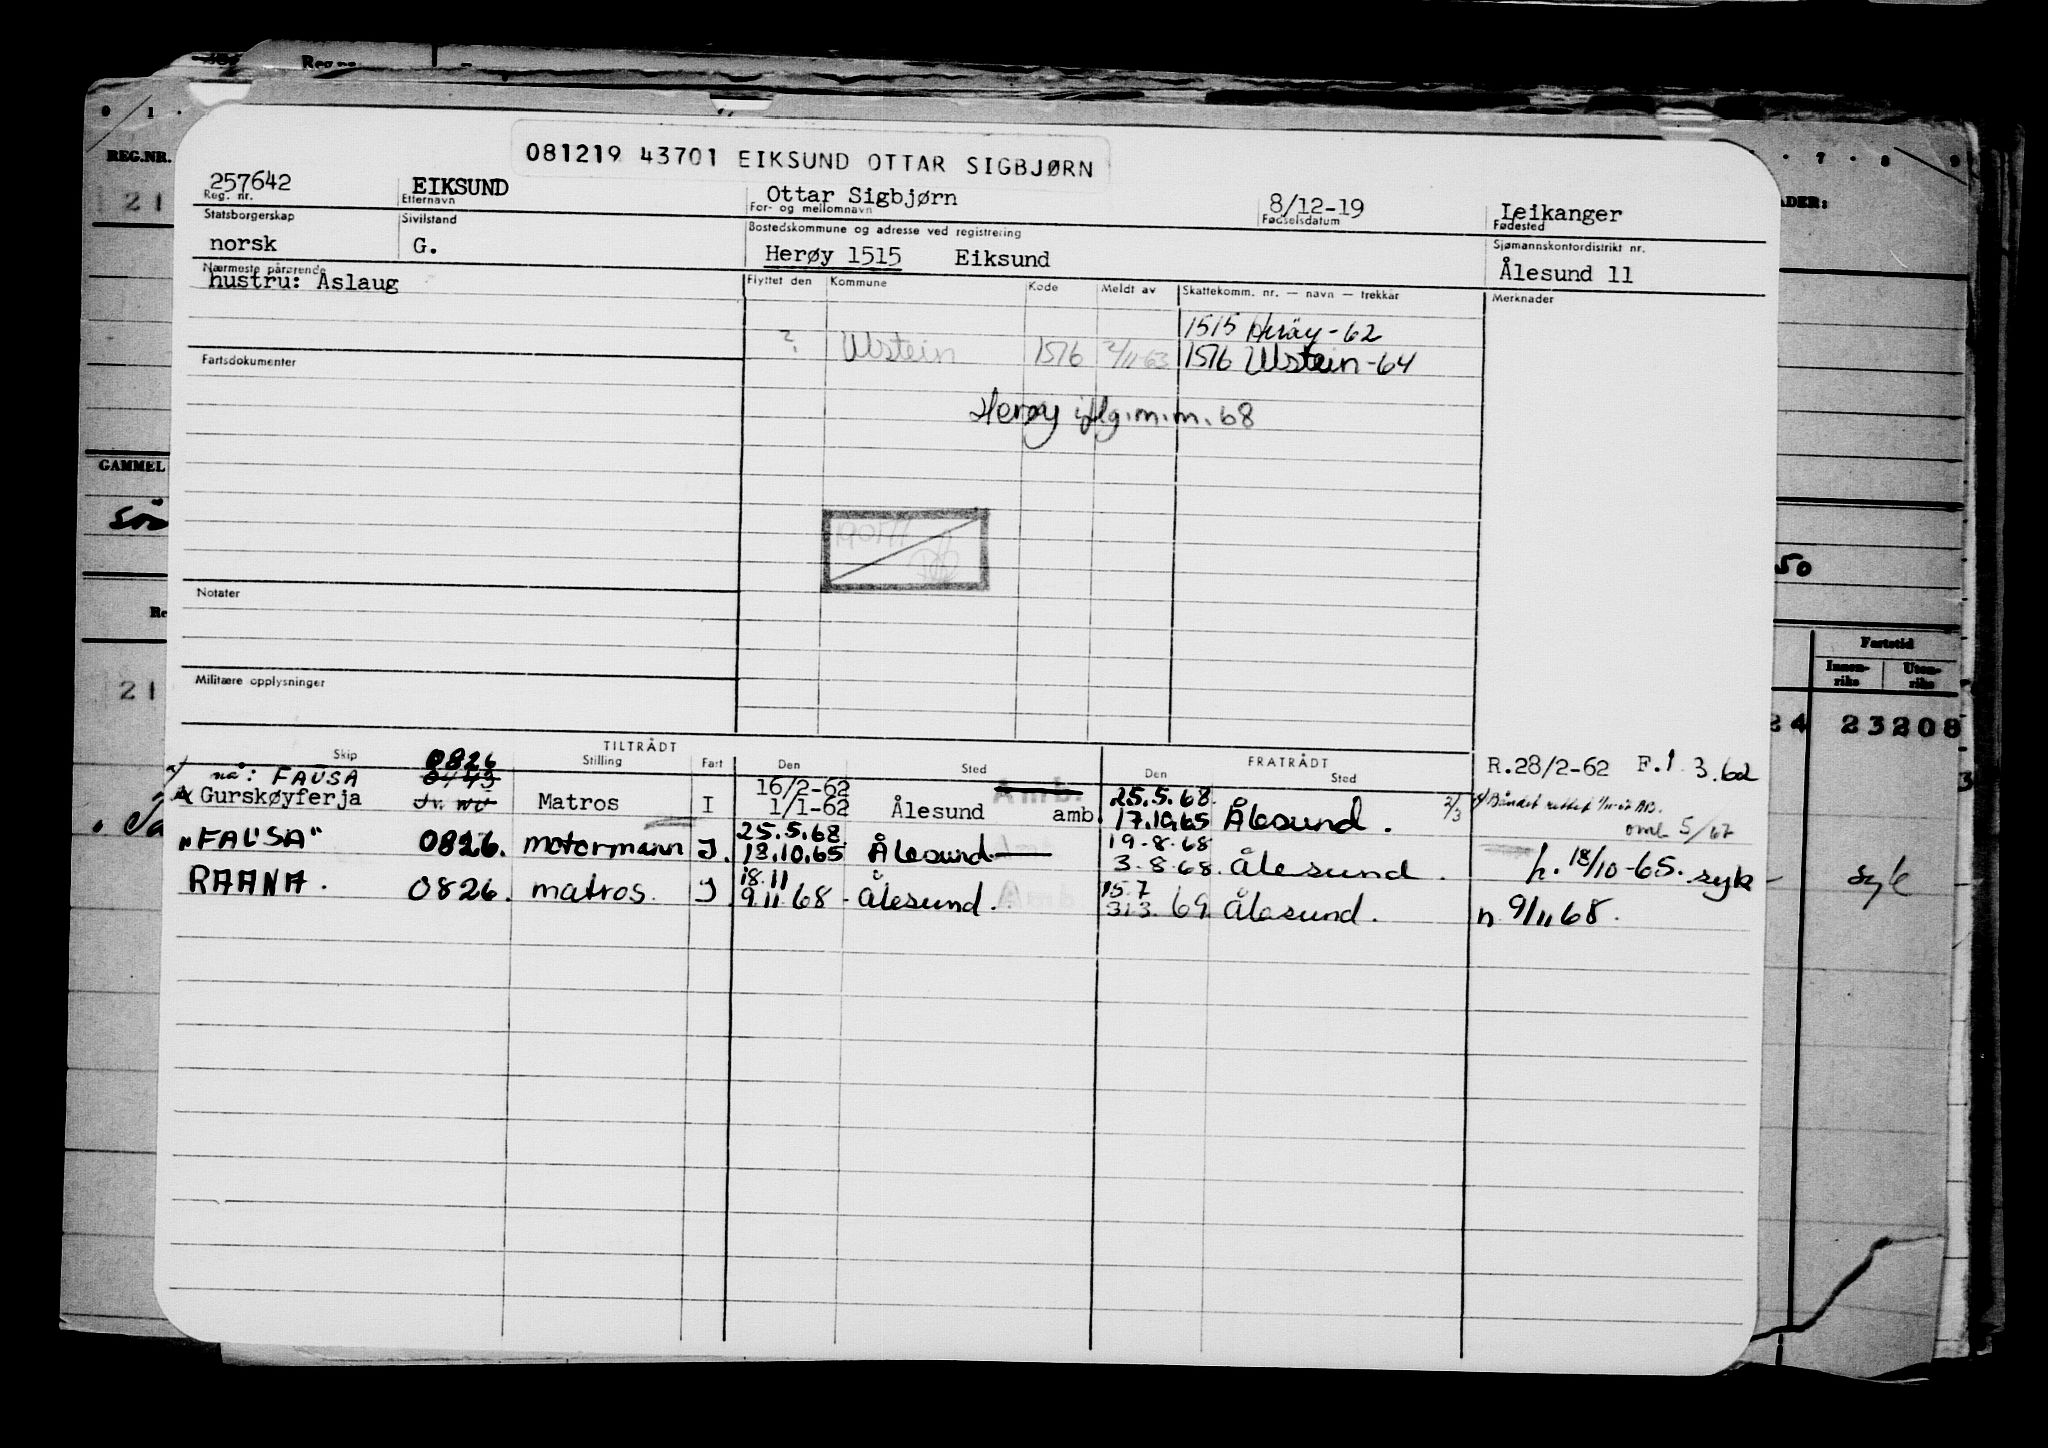 Reg.nr.
0 1
REG.NR.
21
GAMMEL
21
7 8 9
50
Fartstid
Innen-riks Uten-riks
24 23208
syk
081219 43701 EIKSUND OTTAR SIGBJØRN
257642 EIKSUND Ottar Sigbjørn 8/12-19 Leikanger
Reg. nr. Etternavn For- og mellomnavn Fødselsdatum Fødested
Statsborgerskap Sivilstand Bostedskommune og adresse ved registrering Sjømannskontordistrikt nr.
norsk G. Herøy 1515 Eiksund Ålesund 11
Nærmeste pårørende Flyttet den Kommune Kode Meldt av Skattekomm. nr. — navn — trekkår Merknader
hustru: Aslaug
1515 Herøy-62
? Ulstein 1516 2/11-63 1516 Ulstein-64
Fartsdokumenter
Herøy iflg. m.m. 68
Notater
Militære opplysninger
TILTRÅDT FRATRÅDT
Skip Stilling Fart Den Sted Den Sted
0826
nå: FAUSA 0443 16/2-62 Amb. 25.5.68. R.28/2-62 F.1 3.62
Gurskøyferja Matros I 1/1-62 Ålesund amb. 17.10.65 Ålesund. 2/3
oml 5/67
25.5.68. 19.8.68
"FAUSA" 0826. motormann I. 18.10.65 Ålesund 3.8.68. Ålesund. h. 18/10-65. syk
18.11 15.7
RAANA. 0826. matros. I 9.11 68 - Ålesund. 31.3. 69. Ålesund. n 9/11 68.